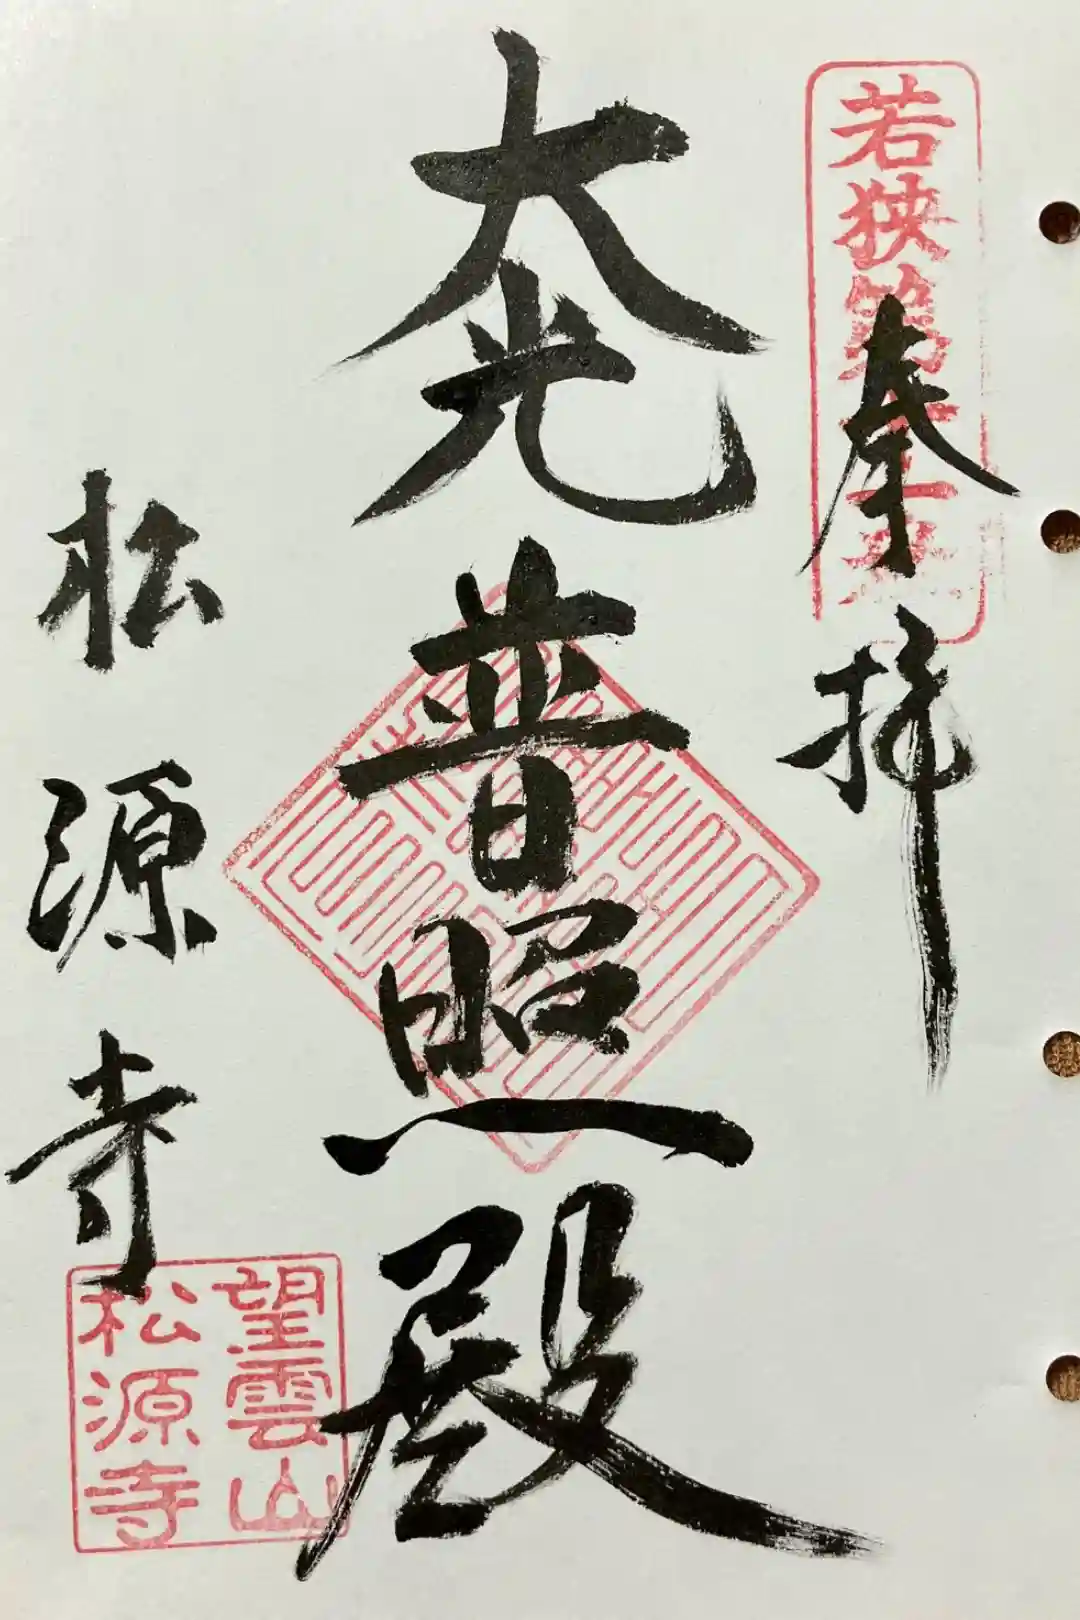 奉拝
若狭第
大光普照殿
松源寺
望雲山
松源寺